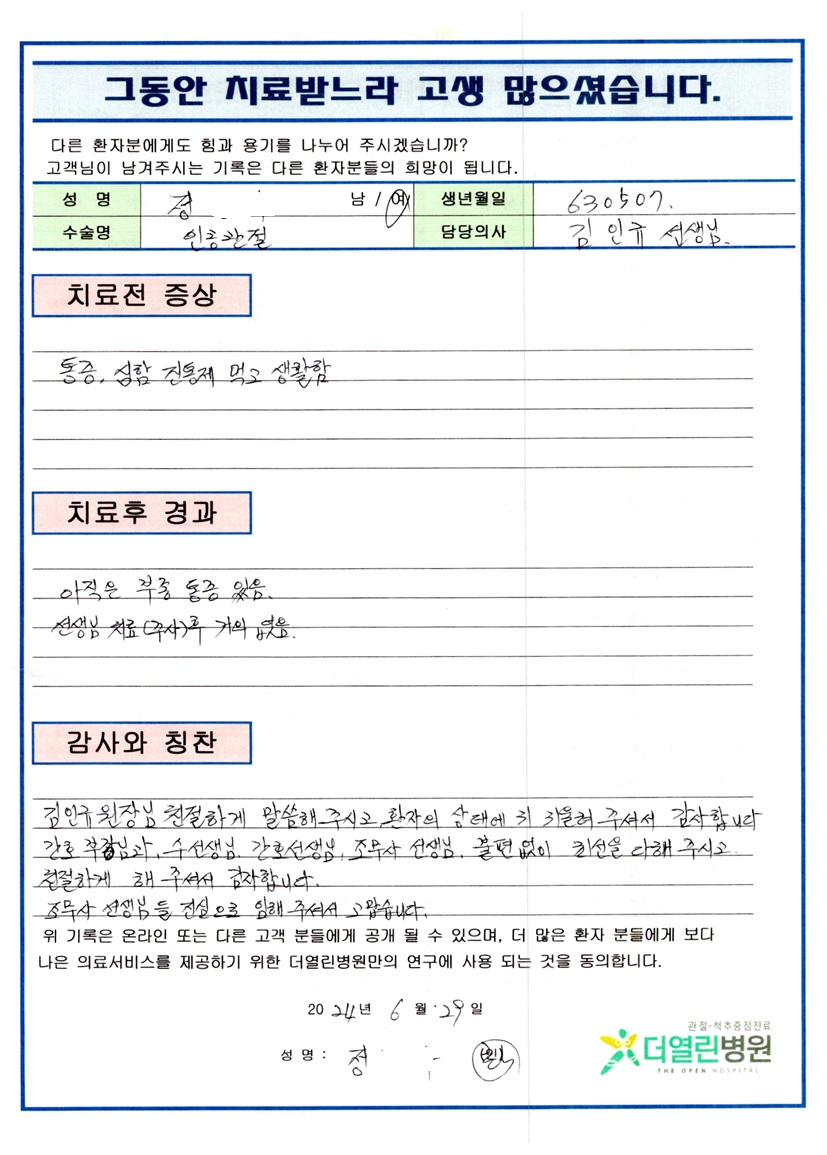 그동안 치료받느라 고생 많으셨습니다.
다른 환자분에게도 힘과 용기를 나누어 주시겠습니까?
고객님이 남겨주시는 기록은 다른 환자분들의 희망이 됩니다.
성 명 정 남 / 여 생년월일 630507.
수술명 인공관절 담당의사 김인규 선생님.
치료전 증상
통증, 심함 진통제 먹고 생활함
치료후 경과
아직은 부종 통증 있음.
선생님 치료(주사)후 거의 없음.
감사와 칭찬
김인규원장님 친절하게 말씀해 주시고 환자의 상태에 귀 기울혀 주셔서 감사합니다
간호 부장님과, 수선생님, 간호선생님, 조무사 선생님, 불편없이 최선을 다해 주시고
친절하게 해 주셔서 감사합니다.
조무사 선생님들 진심으로 임해 주셔서 고맙습니다.
위 기록은 온라인 또는 다른 고객 분들에게 공개 될 수 있으며, 더 많은 환자 분들에게 보다
나은 의료서비스를 제공하기 위한 더열린병원만의 연구에 사용 되는 것을 동의합니다.
2024년 6월 29일
성 명 : 정
관절·척추중점진료
더열린병원
THE OPEN HOSPITAL